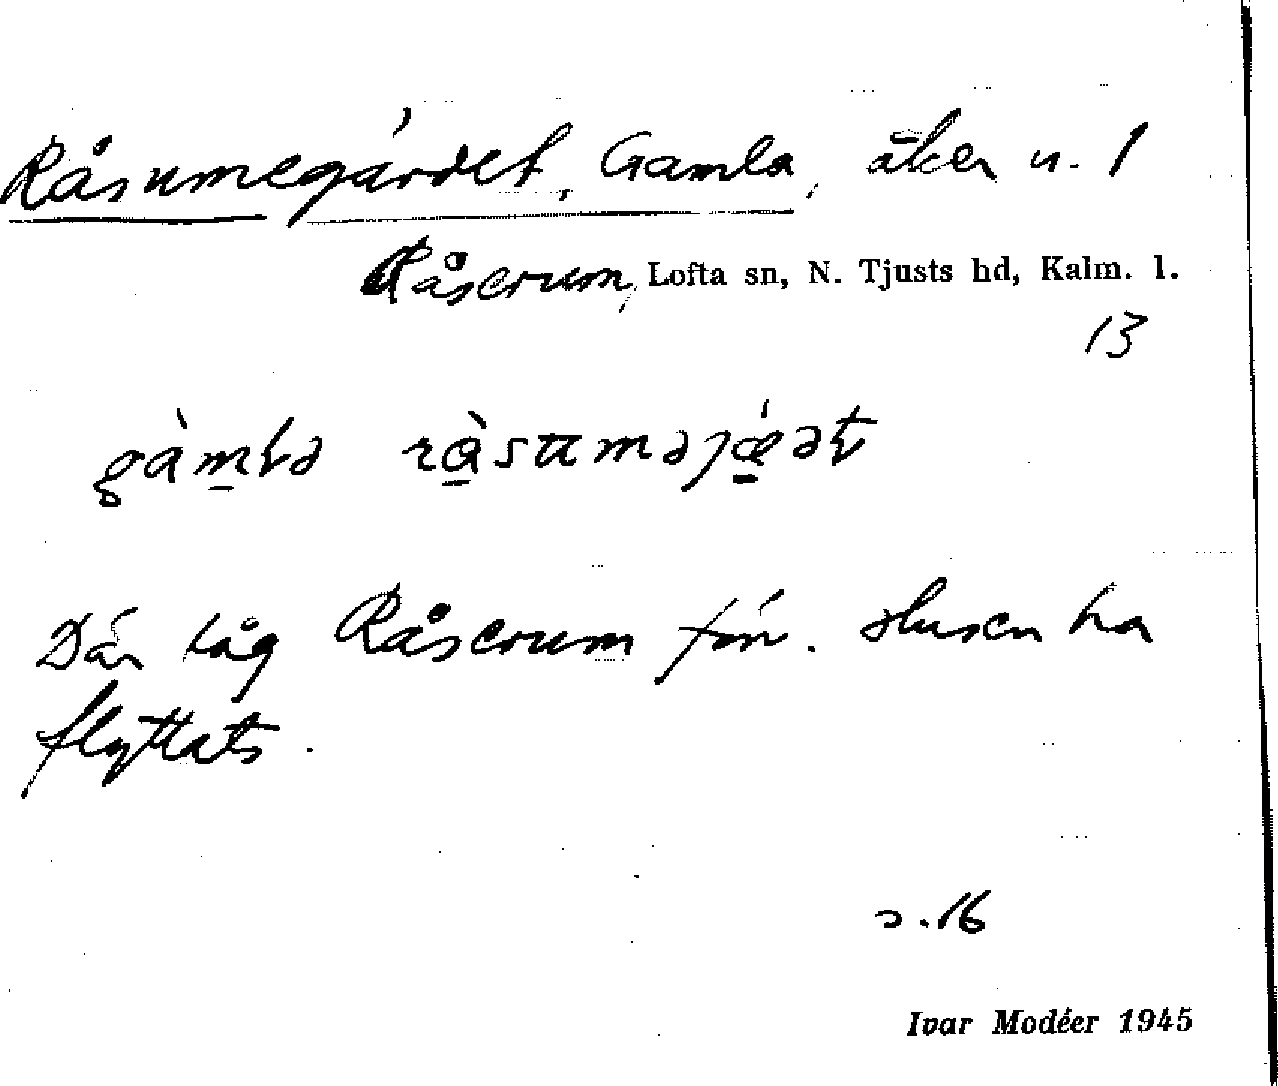 Råsumegärdet, Gamla, åker n. 1
Råserum, Lofta sn, N. Tjusts hd, Kalm. l.
13
gàmla rà̱suməjǽ̱ət
Där låg Råserum förr. Husen ha
flyttats.
s. 16
Ivar Modéer 1945